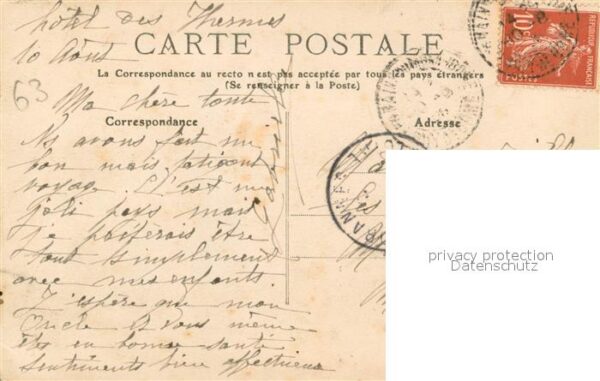 hôtel des Thermes
10 Août
CARTE POSTALE
La Correspondance au recto n'est pas acceptée par tous les pays étrangers
(Se renseigner à la Poste)
63
Correspondance
Adresse
Ma chère tante
Ns avons fait un
bon mais fatigant
voyage. C'est un
joli pays mais
je préférerais être
tout simplement
avec mes enfants.
J'espère que mon
Oncle et vous même
êtes en bonne santé
sentiments bien affectueux
10c
REPUBLIQUE FRANÇAISE
privacy protection
Datenschutz